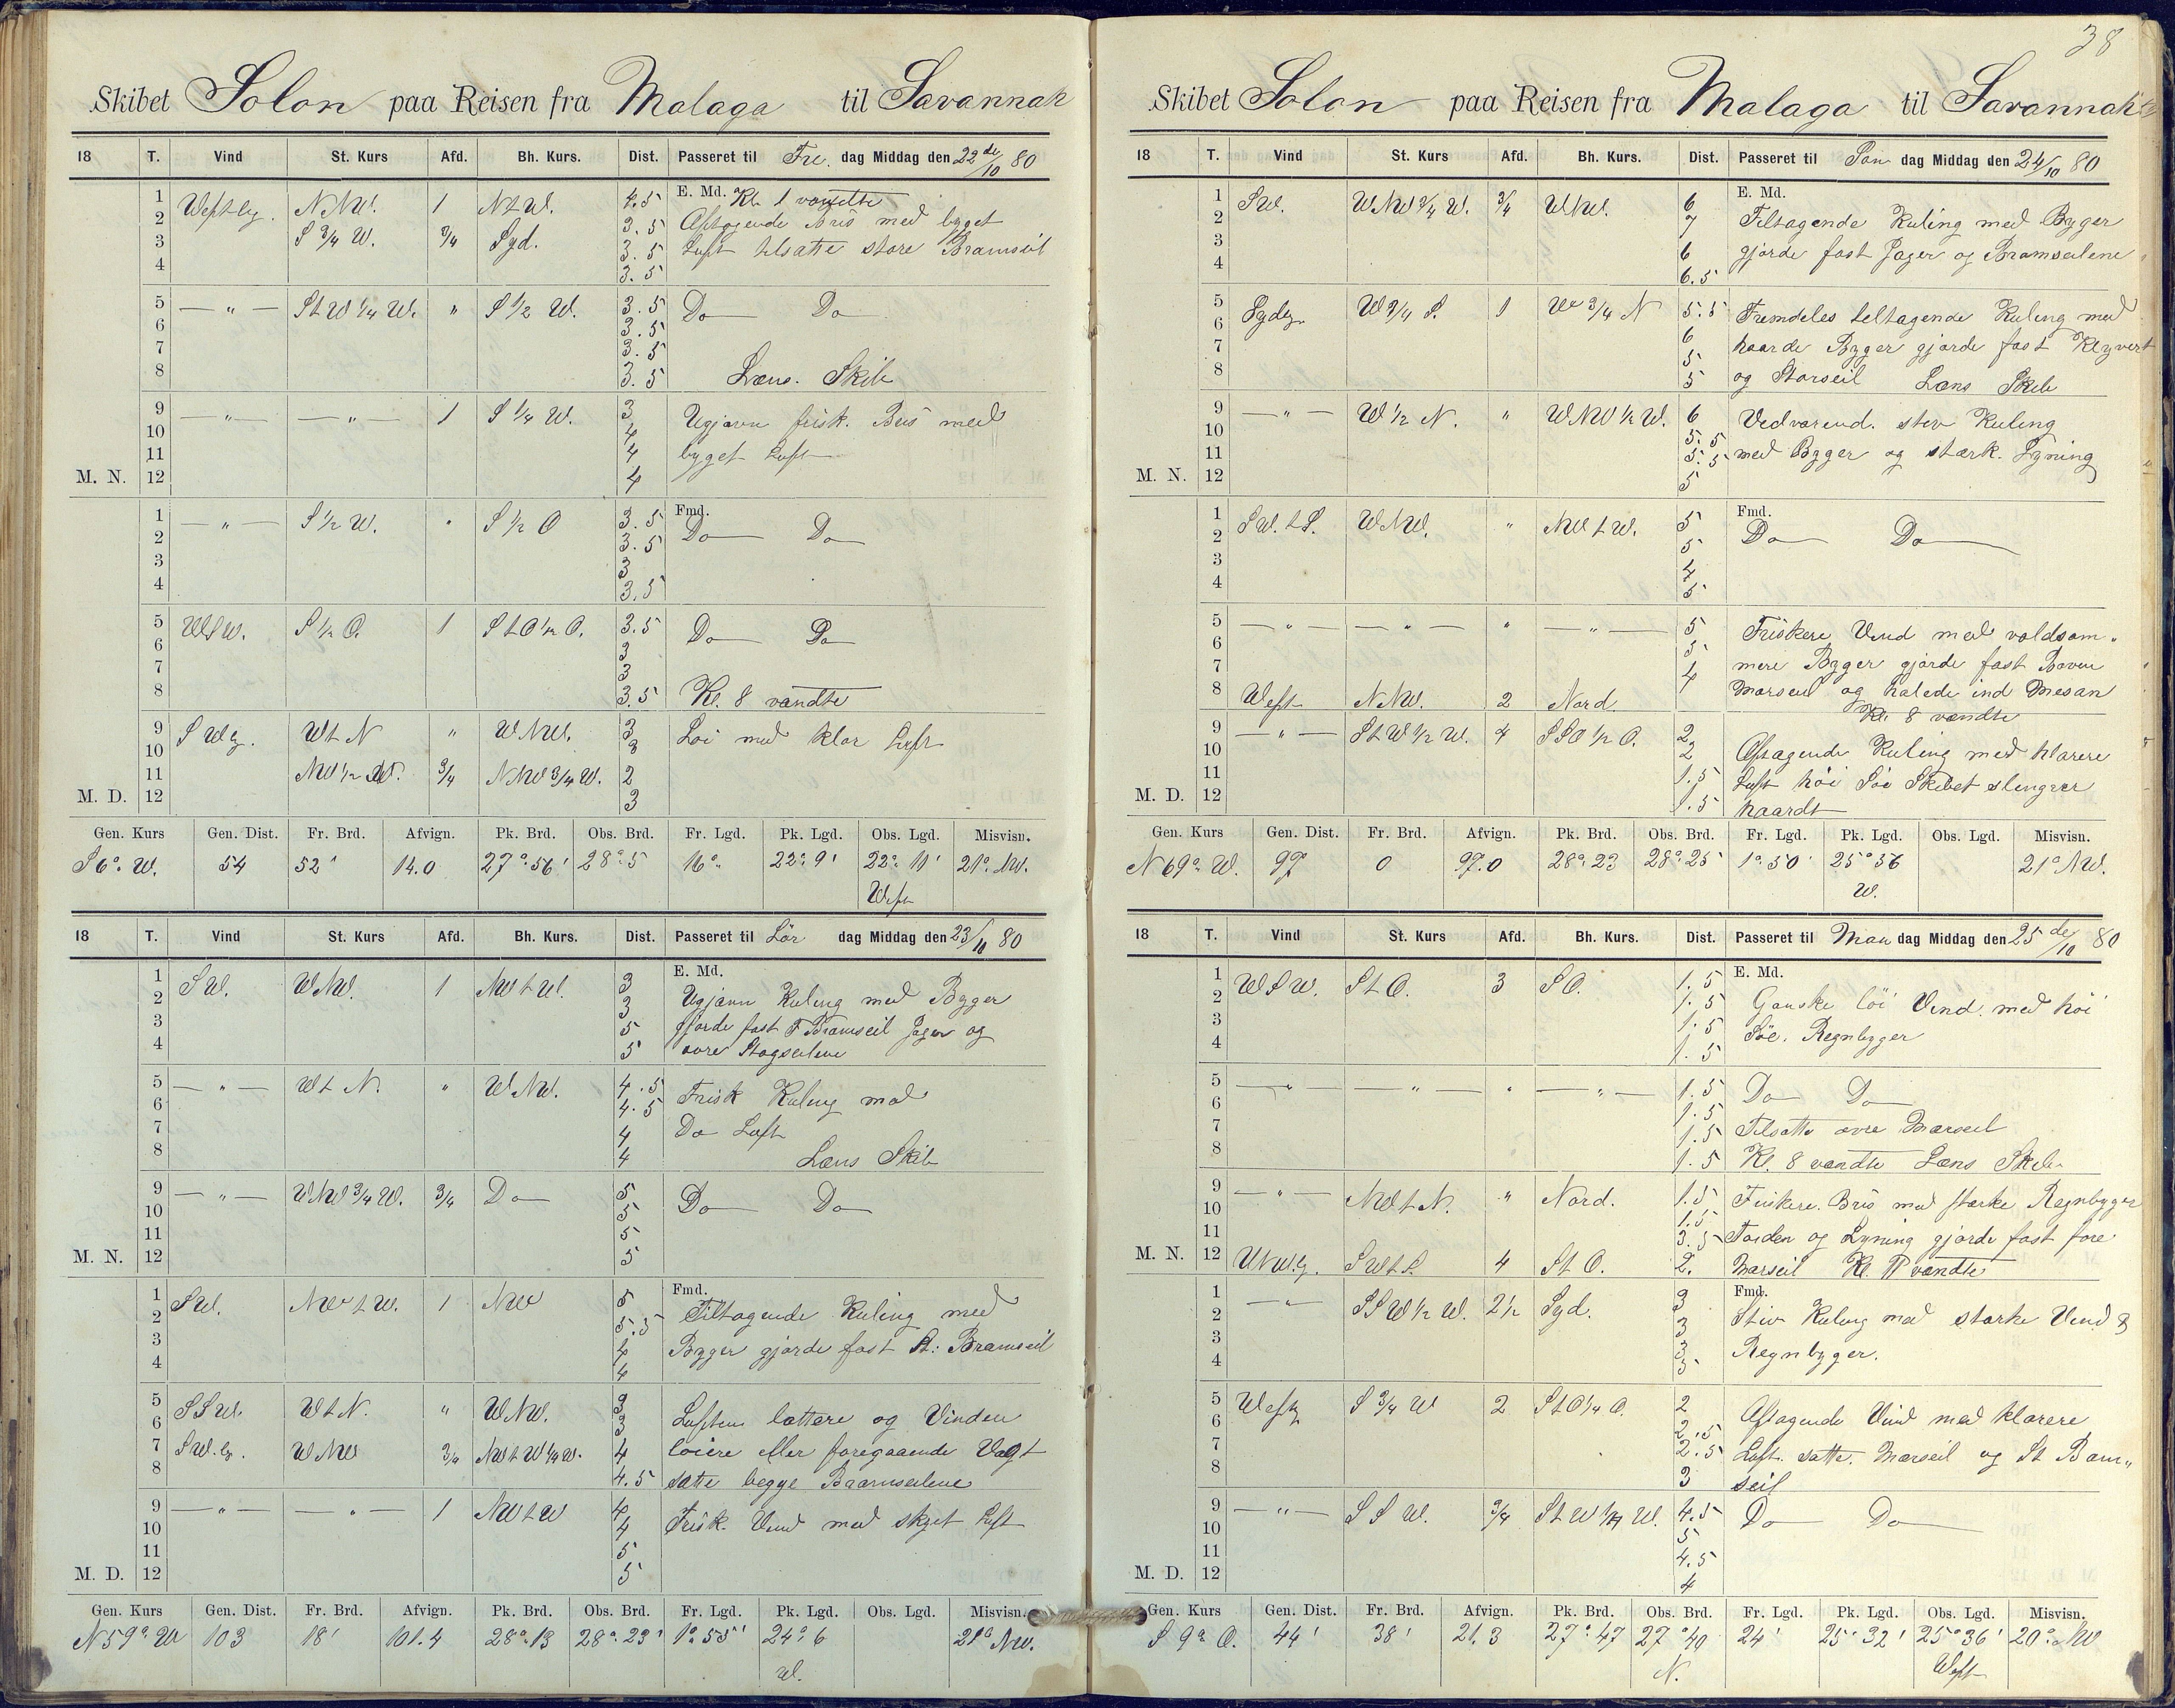 Skibet Solon paa Reisen fra Malaga til Savannah
18 T. Vind St. Kurs Afd. Bh. Kurs. Dist. Passeret til Fre. dag Middag den 22 de/10 80
1 Westlig. NNW. 1 NtW. 4.5 E. Md. Kl. 1 vendte
2 3.5 Aftagende Bris med byget
3 S 3/4 W. 3/4 Syd. 3.5 Luft tilsatte store Bramseil
4 3.5
5 — " — StW 1/4 W. " S 1/2 W. 3.5 Do Do
6 3.5
7 3.5
8 3.5 Læns. Skib
9 — " — — " — 1 S 1/4 W. 3 Ugjævn frisk. Bris med
10 4
11 4 byget Luft
M. N. 12 4
1 — " — S 1/2 W. " S 1/2 O 3.5 Fmd. Do Do
2 3.5
3 3
4 3.5
5 WSW. S 1/2 O. 1 StO 1/2 O. 3.5 Do Do
6 3
7 3
8 3.5 Kl. 8 vendte
9 SWlg. WtN " WNW. 3 Løi med klar Luft
10 3
11 NW 1/2 W. 3/4 NNW 3/4 W. 2
M. D. 12 3
Gen. Kurs Gen. Dist. Fr. Brd. Afvign. Pk. Brd. Obs. Brd. Fr. Lgd. Pk. Lgd. Obs. Lgd. Misvisn.
S 6° W. 54 52' 14.0 27° 56' 28° 5 16" 22° 9' 22° 11' 21° NW.
West
18 T. Vind St. Kurs Afd. Bh. Kurs. Dist. Passeret til Lör dag Middag den 23/10 80
1 SW. WNW. 1 NWtW. 3 E. Md.
2 3 Ugjævn Kuling med Byger
3 5 gjorde fast F Bramseil Jager og
4 5 øvre Stagseilene
5 — " — WtN. " WNW. 4.5 Frisk Kuling med
6 4.5
7 4 Do Luft
8 4 Læns Skib
9 — " — WNW 3/4 W. 3/4 Do 5 Do Do
10 5
11 5
M. N. 12 5
1 SW. NWtW. 1 NW 5 Fmd.
2 5.5 Tiltagende Kuling med
3 4 Byger gjorde fast St: Bramseil
4 4
5 SSW. WtN. " WNW. 3
6 3 Luften lettere og Vinden
7 SW.lg. WNW 3/4 NWtW 1/4 W. 4 løiere eller foregaaende Vagt
8 4.5 satte begge Bramseilene
9 — " — — " — 1 NWtW 4 Frisk. Vind med skyet Luft
10 4
11 5
M. D. 12 5
Gen. Kurs Gen. Dist. Fr. Brd. Afvign. Pk. Brd. Obs. Brd. Fr. Lgd. Pk. Lgd. Obs. Lgd. Misvisn.
N 59° W 103 18' 101.4 28° 13 28° 23' 1° 55' 24° 6 21° NW.
W.
38
Skibet Solon paa Reisen fra Malaga til Savannah
18 T. Vind St. Kurs Afd. Bh. Kurs. Dist. Passeret til Søn dag Middag den 24/10 80
1 SW. WNW 3/4 W. 3/4 WNW. 6 E. Md.
2 7 Tiltagende Kuling med Byger
3 6 gjorde fast Jager og Bramseilene
4 6.5
5 Sydlg. W 3/4 S. 1 W 3/4 N 5.5 Fremdeles tiltagende Kuling med
6 6
7 5 haarde Byger gjorde fast Klyvert
8 5 og Storseil Læns Skib
9 — " — W 1/2 N. " WNW 1/2 W. 6 Vedvarend. stiv Kuling
10 5.5
11 5.5 med Byger og stærk. Lyning
M. N. 12 5
1 SW.tS. WNW. " NWtW. 5 Fmd.
2 5 Do Do
3 4
4 5
5 — " — — " — " — " — 5 Friskere Vind med voldsom„
6 5
7 4 mere Byger gjorde fast Boven
8 West NNW. 2 Nord. Mærseil og halede ind Mesan
Kl. 8 vendte
9 — " — StW 1/2 W. 4 SSO 1/2 O. 2
10 2 Aftagende Kuling med klarere
11 1.5 Luft høi Söe Skibet slengrer
M. D. 12 1.5 haardt
Gen. Kurs Gen. Dist. Fr. Brd. Afvign. Pk. Brd. Obs. Brd. Fr. Lgd. Pk. Lgd. Obs. Lgd. Misvisn.
N 69° W. 97 0 97.0 28° 23 28° 25 1° 50' 25° 56 21° NW.
W.
18 T. Vind St. Kurs Afd. Bh. Kurs. Dist. Passeret til Man dag Middag den 25 de/10 80
1 WSW. StO. 3 SO. 1.5 E. Md.
2 1.5 Ganske löi Vind. med höi
3 1.5 Söe. Regnbyger
4 1.5
5 — " — — " — " — " — 1.5 Do Do
6 1.5
7 1.5 Tilsatte øvre Mærseil
8 1.5 Kl. 8 vendte Læns Skib
9 — " — NWtN. " Nord. 1.5 Friskere. Bris med stærke Regnbyger
10 1.5
11 3.5 Torden og Lyning gjorde fast fore
M. N. 12 WNW.lg. SWtS. 4 StO. 2. Mærseil Kl. 11 vendte
1 — " — SSW 1/2 W. 2 1/2 Syd. 3 Fmd.
2 3 Stiv Kuling med stærke Vind &
3 3 Regnbyger.
4 3
5 Westlg S 3/4 W 2 StO 1/4 O. 2 Aftagende Vind med klarere
6 2.5
7 2.5 Luft. satte. Mærseil og St Bam„
8 3 seil
9 — " — SSW. 3/4 StW 1/4 W. 4.5 Do Do
10 5
11 4.5
M. D. 12 4
Gen. Kurs Gen. Dist. Fr. Brd. Afvign. Pk. Brd. Obs. Brd. Fr. Lgd. Pk. Lgd. Obs. Lgd. Misvisn.
S 9° O. 44' 38' 21.3 27° 47 27° 40 24' 25° 32' 25° 36' 20° NW
N. West